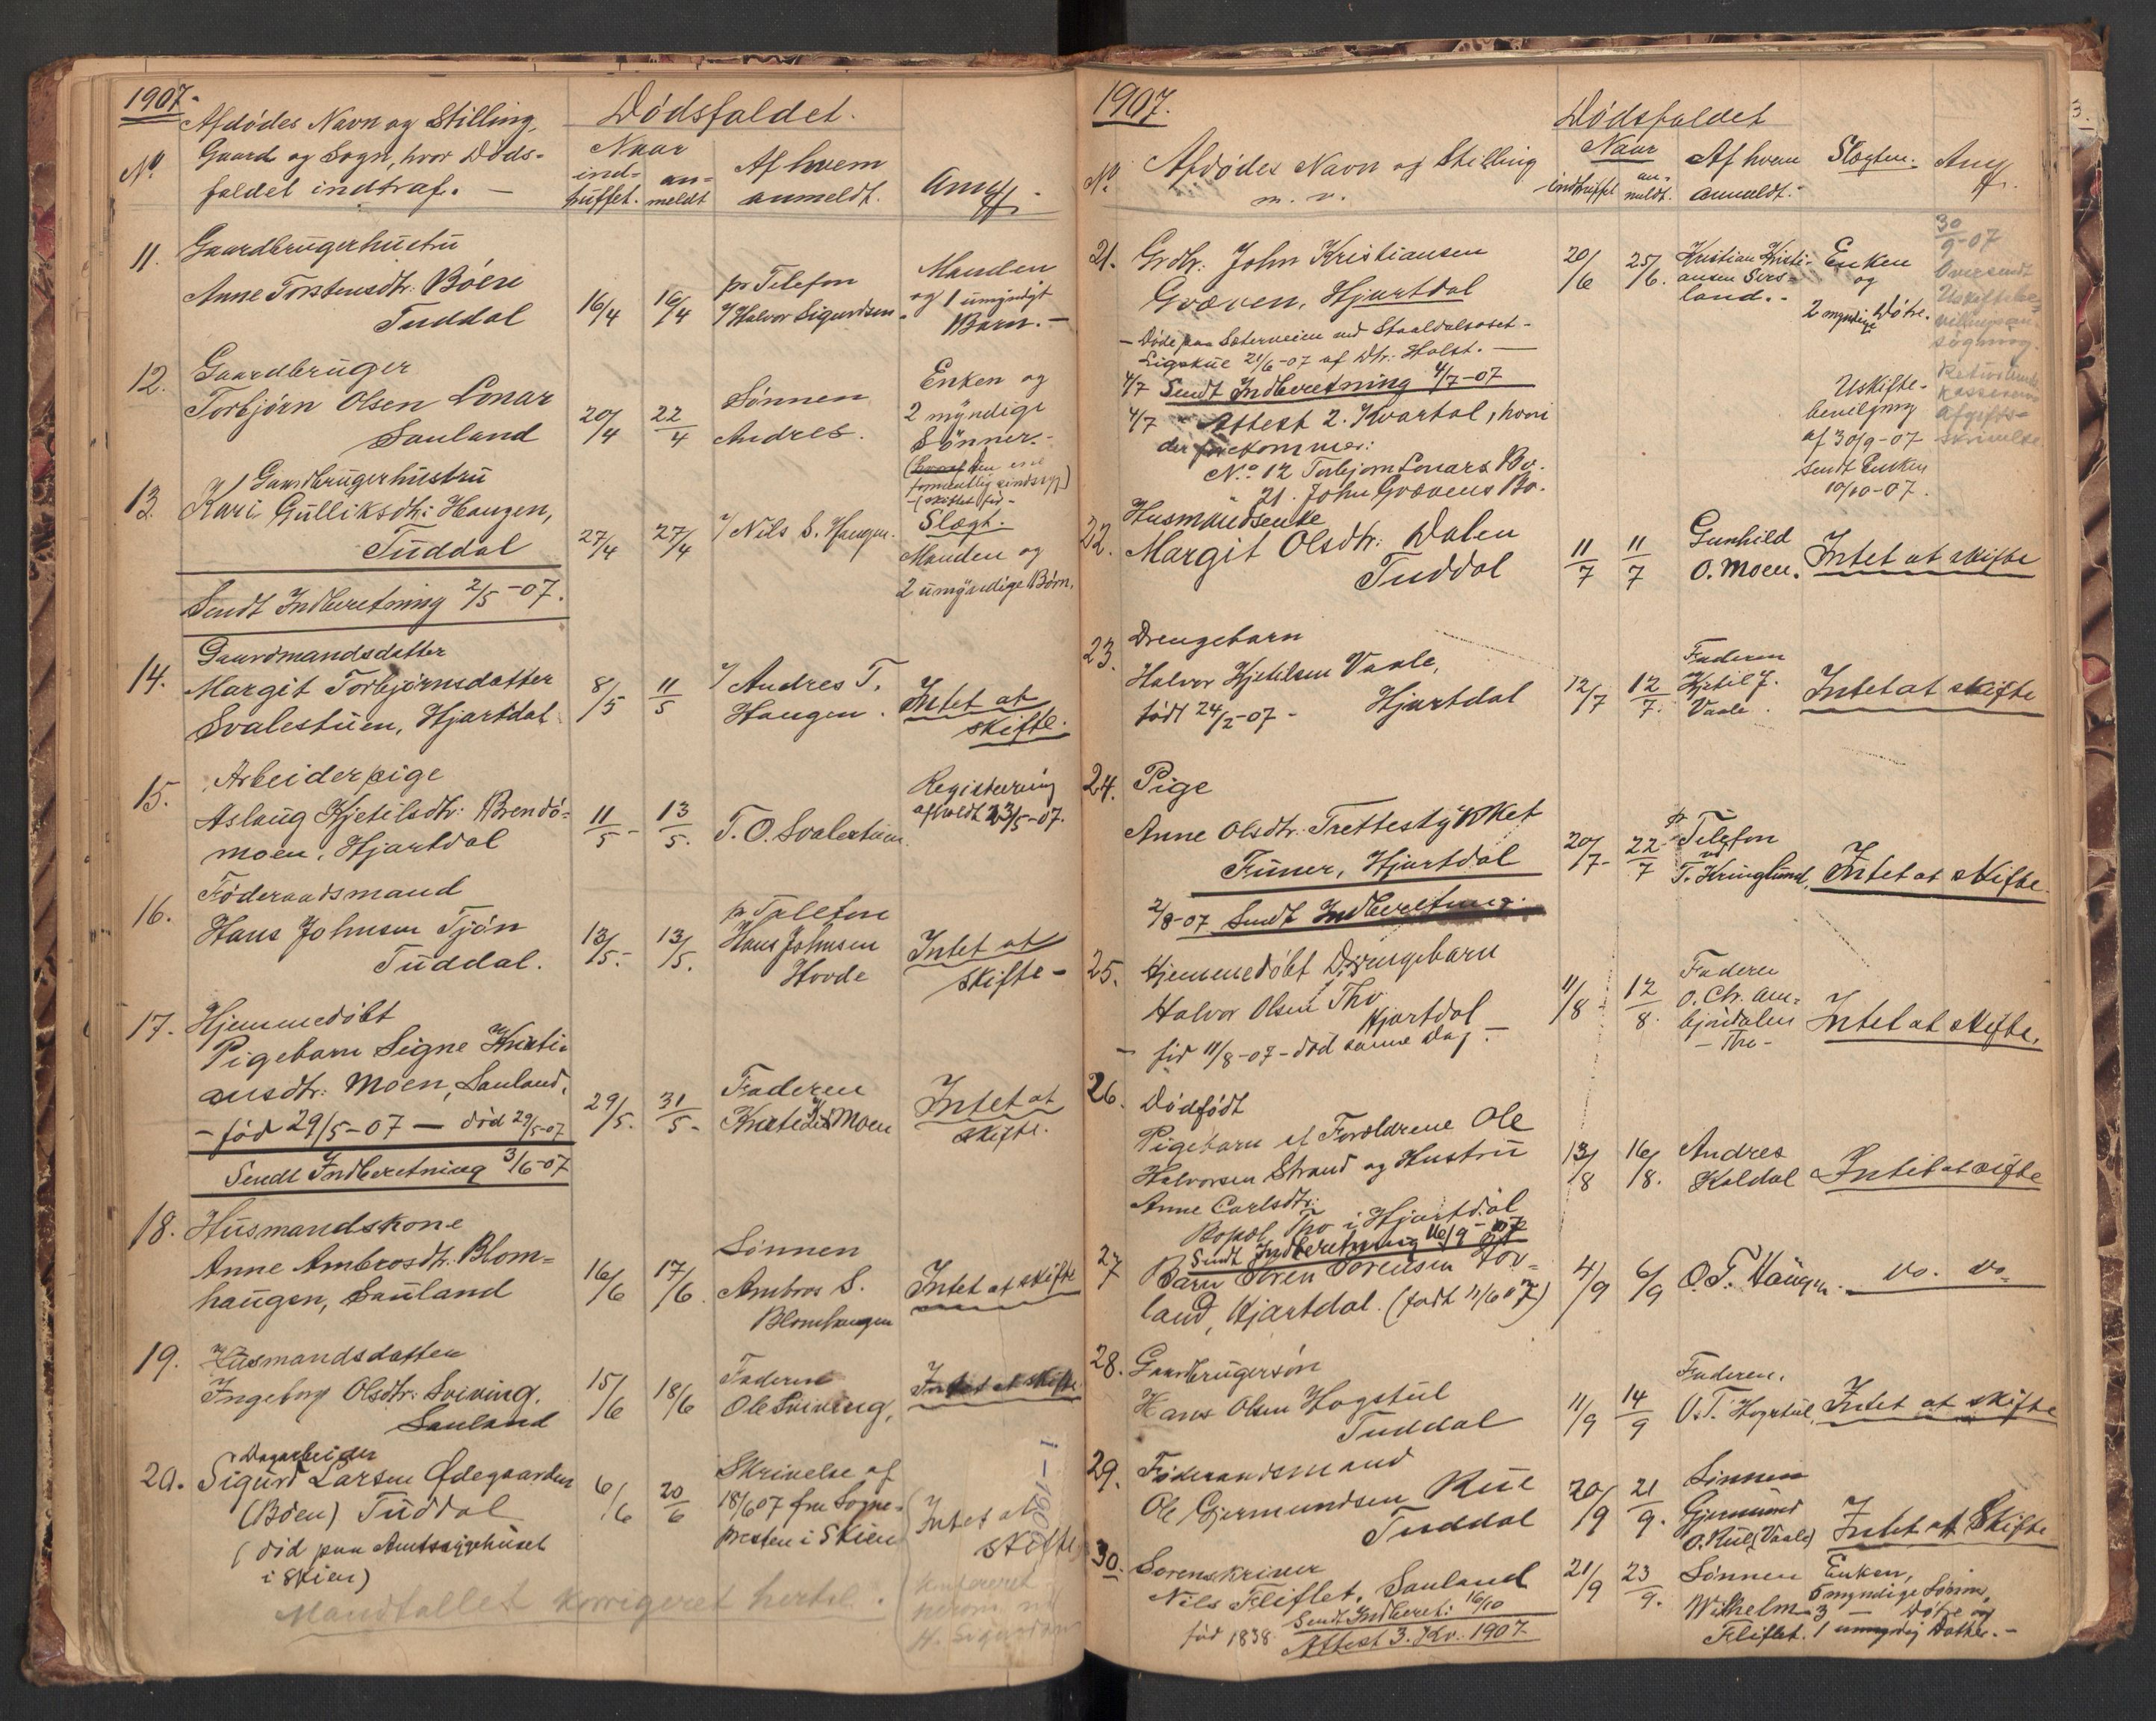 1907.
Afdödes Navn og Stilling,
Gaard og Sogn, hvor Döds-
faldet indtraf. —
No.
Dödsfaldet.
Naar
ind-
truffet.
an-
meldt
Af hvem
anmeldt.
Anm.
11.
Gaardbrugerhustru
Anne Torstensdtr: Böen
Tuddal
16/4
16/4
pr Telefon
v/ Halvor Sigurdsen
Manden
og 1 umyndigt
Barn. —
12.
Gaardbruger
Torbjörn Olsen Lonar
Sauland
20/4
22/4
Sønnen
Andres.
Enken og
2 myndige
Sønner. -
13.
Gaardbrugerhustru
Kari Gulliksdtr: Haugen,
Tuddal
27/4
27/4
v/ Nils S. Haugen.
Slægt.
Manden og
2 umyndige Børn.
Sendt Indberetning 2/5-07.
14.
Gaardmandsdatter
Margit Torbjørnsdatter
Svalestuen, Hjartdal
8/5
11/5
v/ Andres T.
Haugen.
Intet at
skifte.
15.
Arbeiderpige
Aslaug Kjetilsdtr: Brendö-
moen, Hjartdal
11/5-
13/5.
T. O. Svalestuen.
Registrering
afholdt 23/5-07.
16.
Föderaadsmand
Hans Johnsen Tjön
Tuddal.
13/5.-
13/5.
pr Telefon
Hans Johnsen
Hovde
Intet at
skifte-
17.
Hjemmedöbt
Pigebarn Signe Kristi-
ansdtr: Moen, Sauland.
- född 29/5-07 — död 29/5-07
29/5.
31/5-
Faderen
Moen
Intet at
skifte.
Sendt Indberetning 3/6-07
18.
Husmandskone
Anne Ambrosdtr. Blom-
haugen, Sauland
16/6
17/6.
Sönnen
Ambros S.
Blomhaugen
Intet at skifte
19.
Husmandsdatter
Ingeborg Olsdtr: Sviving.
Sauland
15/6
18/6
Faderen
Ole Sviving.
Intet at skifte
20.
Dagarbeider
Sigurd Larsen Ødegaarden
(Böen) Tuddal
(död paa Amtssygehuset
i Skien)
6/6
20/6
Skrivelse af
18/6 07 fra Sogne-
presten i Skien
Intet at
skifte
Mandtallet korrigeret hertil.
1907.
No.
Afdödes Navn og Stilling
m. v.
Dödsfaldet
Naar
indtruffet
an-
meldt.
Af hvem
anmeldt.
Slægten.
Anm.
21.
Grdbr. John Kristiansen
Græven, Hjartdal
20/6
25/6.
Kristian Kristi-
ansen Sers-
land. -
Enken
og
2 myndige Døtre.
30/9-07
Oversendt
- Döde paa Sæterveien ved Staaldalsoset -
Ligskue 21/6-07 af Dtr: Holst. —
4/7 Sendt Indberetning 4/7-07
4/7 - Attest 2. Kvartal, hvori
der forekommer:
No. 12 Torbjørn Lonars Bo.
" 21. John Grævens Bo.
Uskifte-
bevilgning
af 30/9-07
sendt Enken
10/10-07.
22.
Husmandsenke
Margit Olsdtr: Dalen
Tuddal
11/7
11/7
Gunhild
O. Moen.
Intet at skifte
23.
Drengebarn
Halvor Kjetilsen Vaale,
född 24/2-07 - Hjartdal
12/7
12/7.
Faderen
Kjetil J.
Vaale.
Intet at skifte
24.
Pige
Anne Olsdtr. Trettestykket
Funer, Hjartdal
20/7-
22/7
pr Telefon
ved
T. Kringlund.
Intet at skifte.
2/8-07 Sendt Indberetning.
25.
Hjemmedöbt Drengebarn
Halvor Olsen Tho
Hjartdal
- född 11/8-07 - död samme Dag. -
11/8-
12/8.
Faderen
O. Chr. Am-
bjørdalen
- Tho -
Intet at skifte.
26.
Dödfödt
Pigebarn af Forældrene Ole
Halvorsen Strand og Hustru
Anne Carlsdtr.
Bopæl Tho i Hjartdal
13/8
16/8.
Andres
Kaldal
Intet at skifte
Sendt Indberetning 16/9-07
27
Barn Sören Sörensen
land, Hjartdal. (født 11/6 07)
4/9
6/9
O. T. Haugen.
do. do.
28.
Gaardbrugersøn
Hans Olsen Hogstul
Tuddal
11/9
14/9
Faderen.
O. T. Hogstul,
Intet at skifte
29.
Föderaadsmand
Ole Gjermundsen Rue
Tuddal
20/9
21/9.
Sønnen
Gjermund
O. Rue (Vaale)
Intet at Skifte
30.
Sorenskriver
Nils Fliflet, Sauland
född 1838
21/9
23/9.
Sönnen
Wilhelm
Fliflet.
Enken,
5 myndige Sønner,
3 — Døtre og
1 umyndig Datter. -
Sendt Indberet: 16/10
Attest 3. Kv. 1907